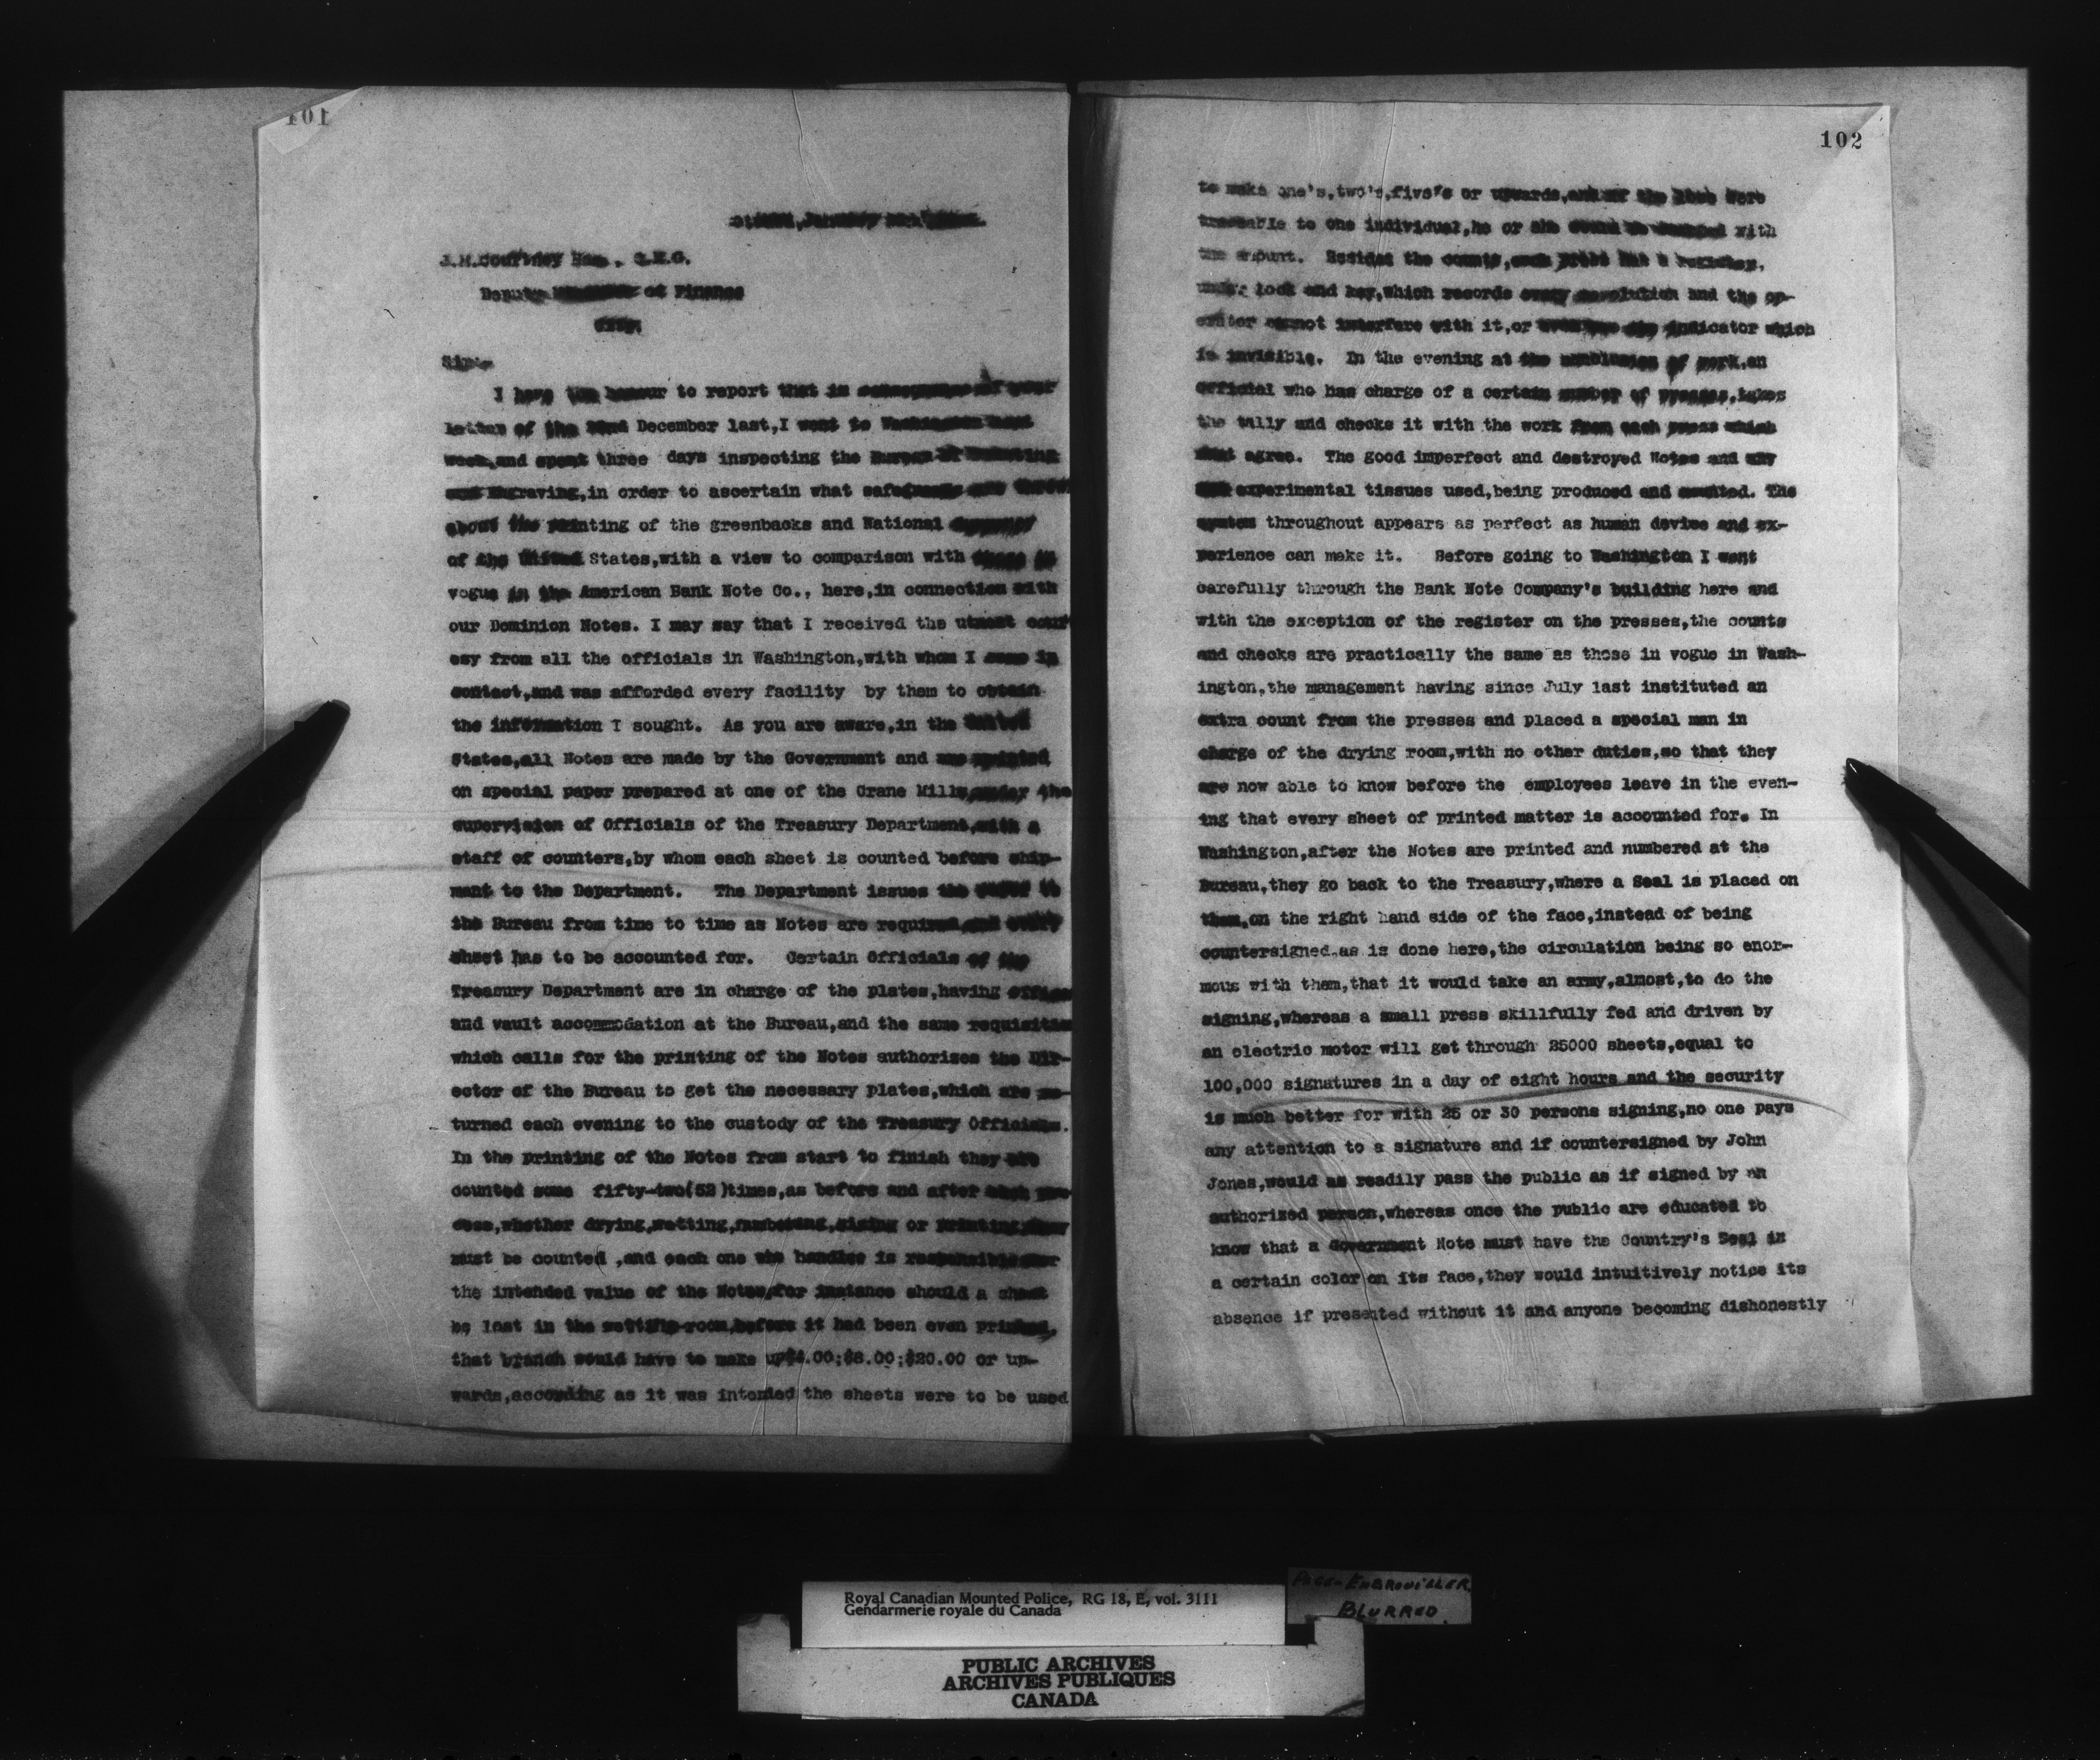 101
J.M.Courtney Esq., C.M.G.
Deputy Minister of Finance
City.
Sir:-
I have the honour to report that in consequence of your
letter of the 22nd December last,I went to Washington last
week,and spent three days inspecting the Bureau of
and Engraving,in order to ascertain what safeguards are
about the printing of the greenbacks and National
of the United States,with a view to comparison with those in
vogue in the American Bank Note Co., here,in connection with
our Dominion Notes. I may say that I received the utmost court
esy from all the officials in Washington,with whom I came in
contact,and was afforded every facility by them to obtain
the information I sought. As you are aware,in the United
States,all Notes are made by the Government and are printed
on special paper prepared at one of the Crane Mills,under the
supervision of Officials of the Treasury Department,with a
staff of counters,by whom each sheet is counted before ship-
ment to the Department. The Department issues the paper to
the Bureau from time to time as Notes are required,and every
sheet has to be accounted for. Certain Officials of the
Treasury Department are in charge of the plates,having office
and vault accommodation at the Bureau,and the same requisition
which calls for the printing of the Notes authorizes the Dir-
ector of the Bureau to get the necessary plates,which are re-
turned each evening to the custody of the Treasury Officials.
In the printing of the Notes from start to finish they are
counted some fifty-two(52)times,as before and after each pro-
cess,whether drying,wetting,numbering,sizing or printing,they
must be counted ,and each one who handles is responsible for
the intended value of the Notes,for instance should a sheet
be lost in the wetting-room,before it had been even printed,
that branch would have to make up$4.00;$8.00;$20.00 or up-
wards,according as it was intended the sheets were to be used
102
to make one's,two's,five's or upwards,and if the loss were
traceable to one individual,he or she would be charged with
the amount. Besides the counts,each press has a register,
under lock and key,which records every revolution and the op-
erator cannot interfere with it,or even see the indicator which
is invisible. In the evening at the conclusion of work,an
official who has charge of a certain number of presses,takes
the tally and checks it with the work from each press which
must agree. The good imperfect and destroyed Notes and any
experimental tissues used,being produced and counted. The
system throughout appears as perfect as human devise and ex-
perience can make it. Before going to Washington I went
carefully through the Bank Note Company's building here and
with the exception of the register on the presses,the counts
and checks are practically the same as those in vogue in Wash-
ington,the management having since July last instituted an
extra count from the presses and placed a special man in
charge of the drying room,with no other duties,so that they
are now able to know before the employees leave in the even-
ing that every sheet of printed matter is accounted for. In
Washington,after the Notes are printed and numbered at the
Bureau,they go back to the Treasury,where a Seal is placed on
them,on the right hand side of the face,instead of being
countersigned,as is done here,the circulation being so enor-
mous with them,that it would take an army,almost,to do the
signing,whereas a small press skillfully fed and driven by
an electric motor will get through 25000 sheets,equal to
100,000 signatures in a day of eight hours and the security
is much better for with 25 or 30 persons signing,no one pays
any attention to a signature and if countersigned by John
Jones,would as readily pass the public as if signed by an
authorized person,whereas once the public are educated to
know that a Government Note must have the Country's Seal in
a certain color on its face,they would intuitively notice its
absence if presented without it and anyone becoming dishonestly
Royal Canadian Mounted Police, RG 18, E, vol. 3111
Gendarmerie royale du Canada
PAGES EMBROUILLER
BLURRED.
PUBLIC ARCHIVES
ARCHIVES PUBLIQUES
CANADA